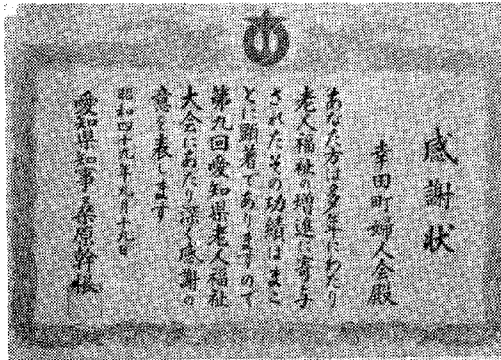 感謝状
幸田町婦人会殿
あなた方は多年にわたり
老人福祉の増進に寄与
されたその功績はまこ
とに顕著でありますので
第九回愛知県老人福祉
大会にあたり深く感謝の
意を表します
昭和四十九年九月十九日
愛知県知事桑原幹根